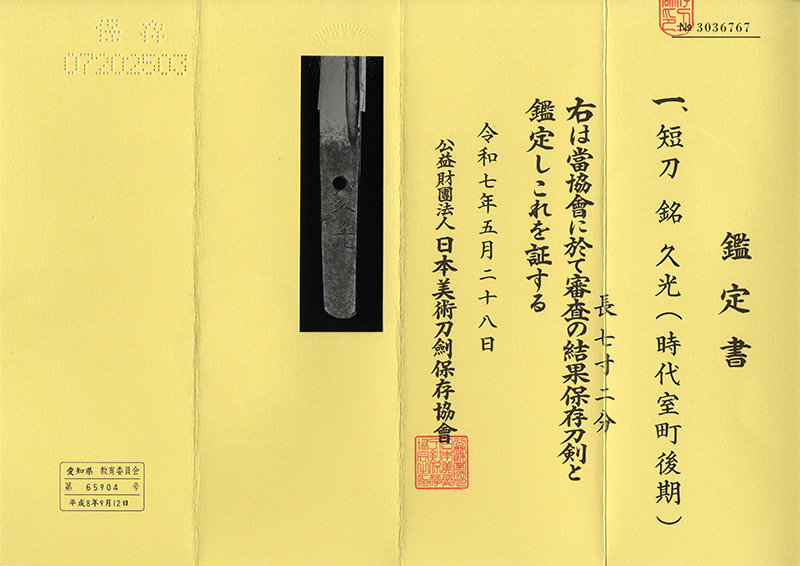 № 3036767
鑑定書
一、短刀 銘 久光(時代室町後期)
長七寸二分
右は當協會に於て審査の結果保存刀剣と
鑑定しこれを証する
令和七年五月二十八日
公益財團法人 日本美術刀劍保存協會
久光
保存
07202503
愛知県 教育委員会
第 65904 号
平成8年9月12日